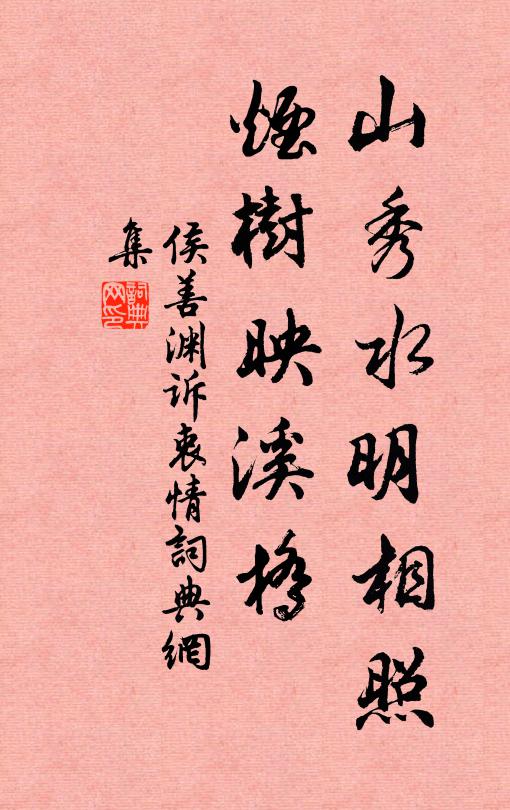 山秀水明相照
煙樹映溪橋
侯善淵訴衷情詞典網
集
詞典網印